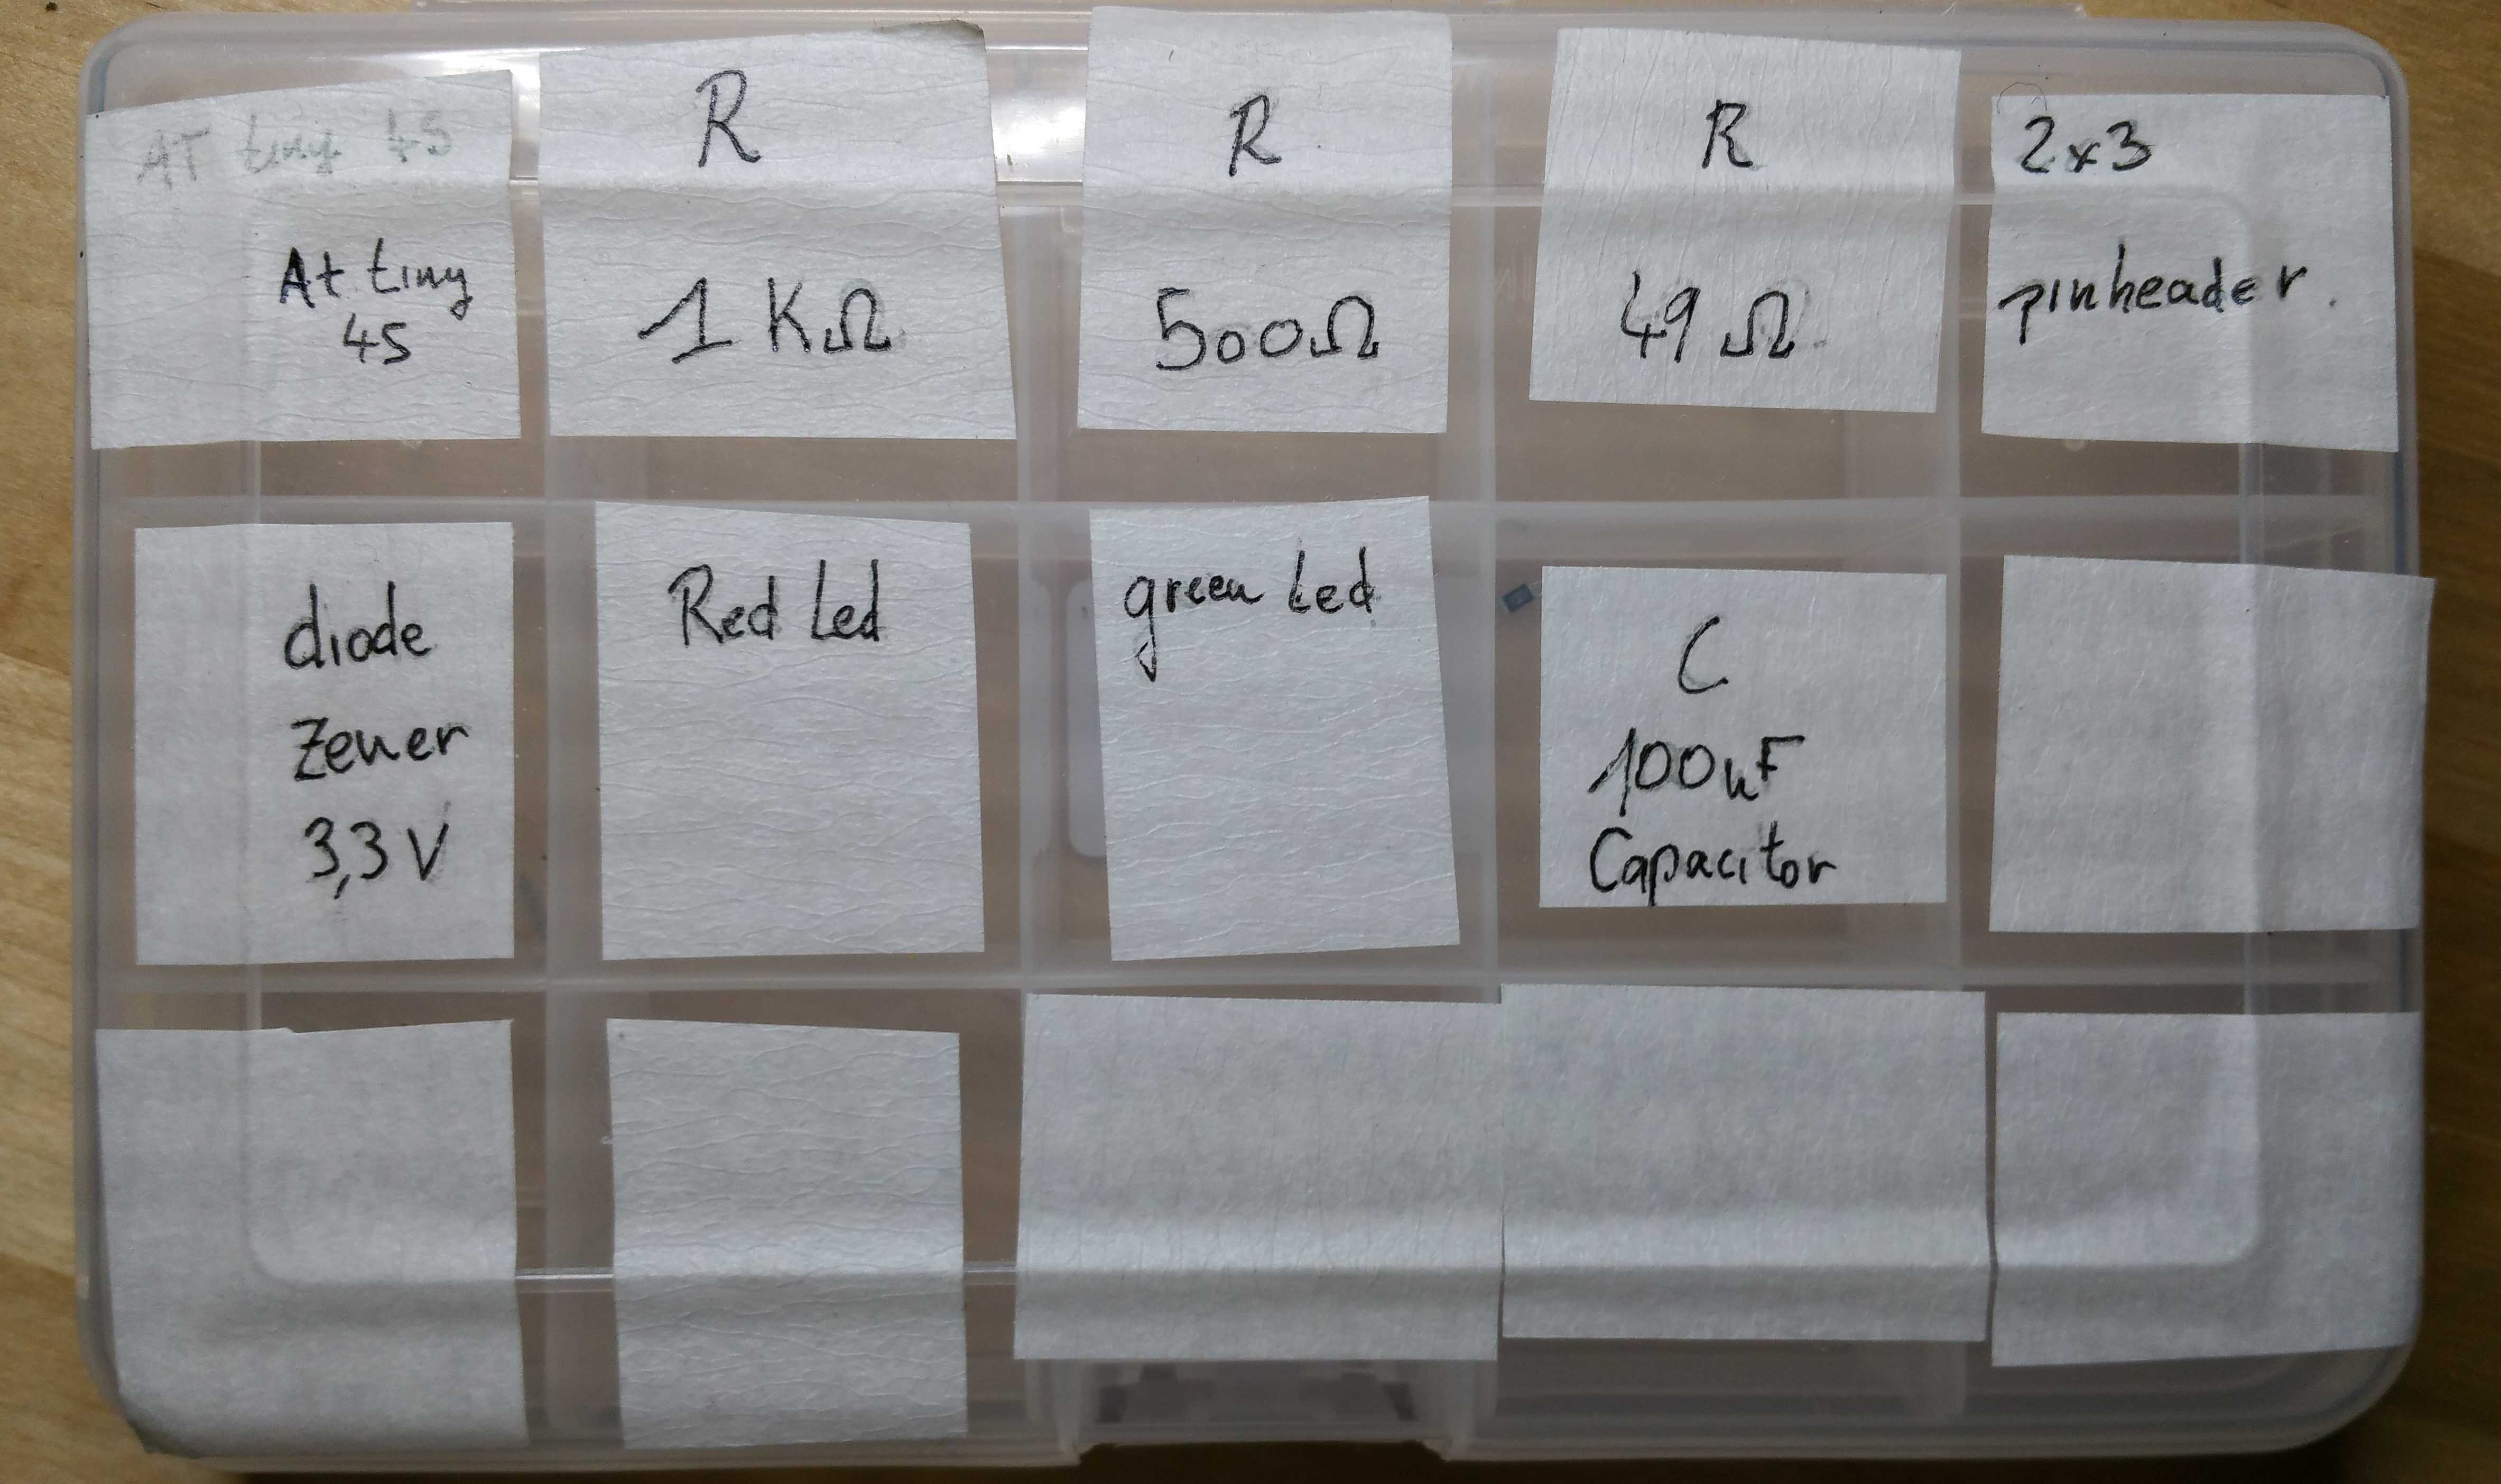 AT tiny 45
At tiny
45
R
1 KΩ
R
500Ω
R
49 Ω
2x3
pinheader.
diode
Zener
3,3 V
Red Led
green Led
C
100nF
Capacitor